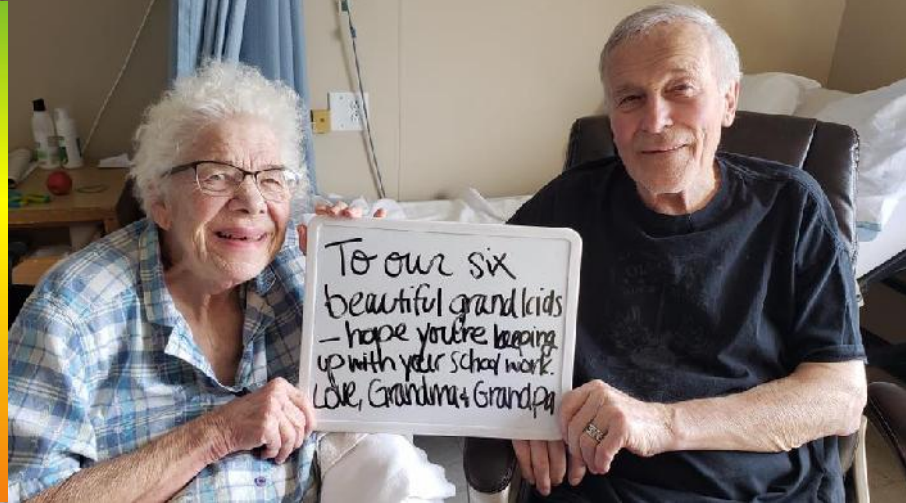 To our six
beautiful grandkids
– hope you're keeping
up with your school work.
Love, Grandma & Grandpa